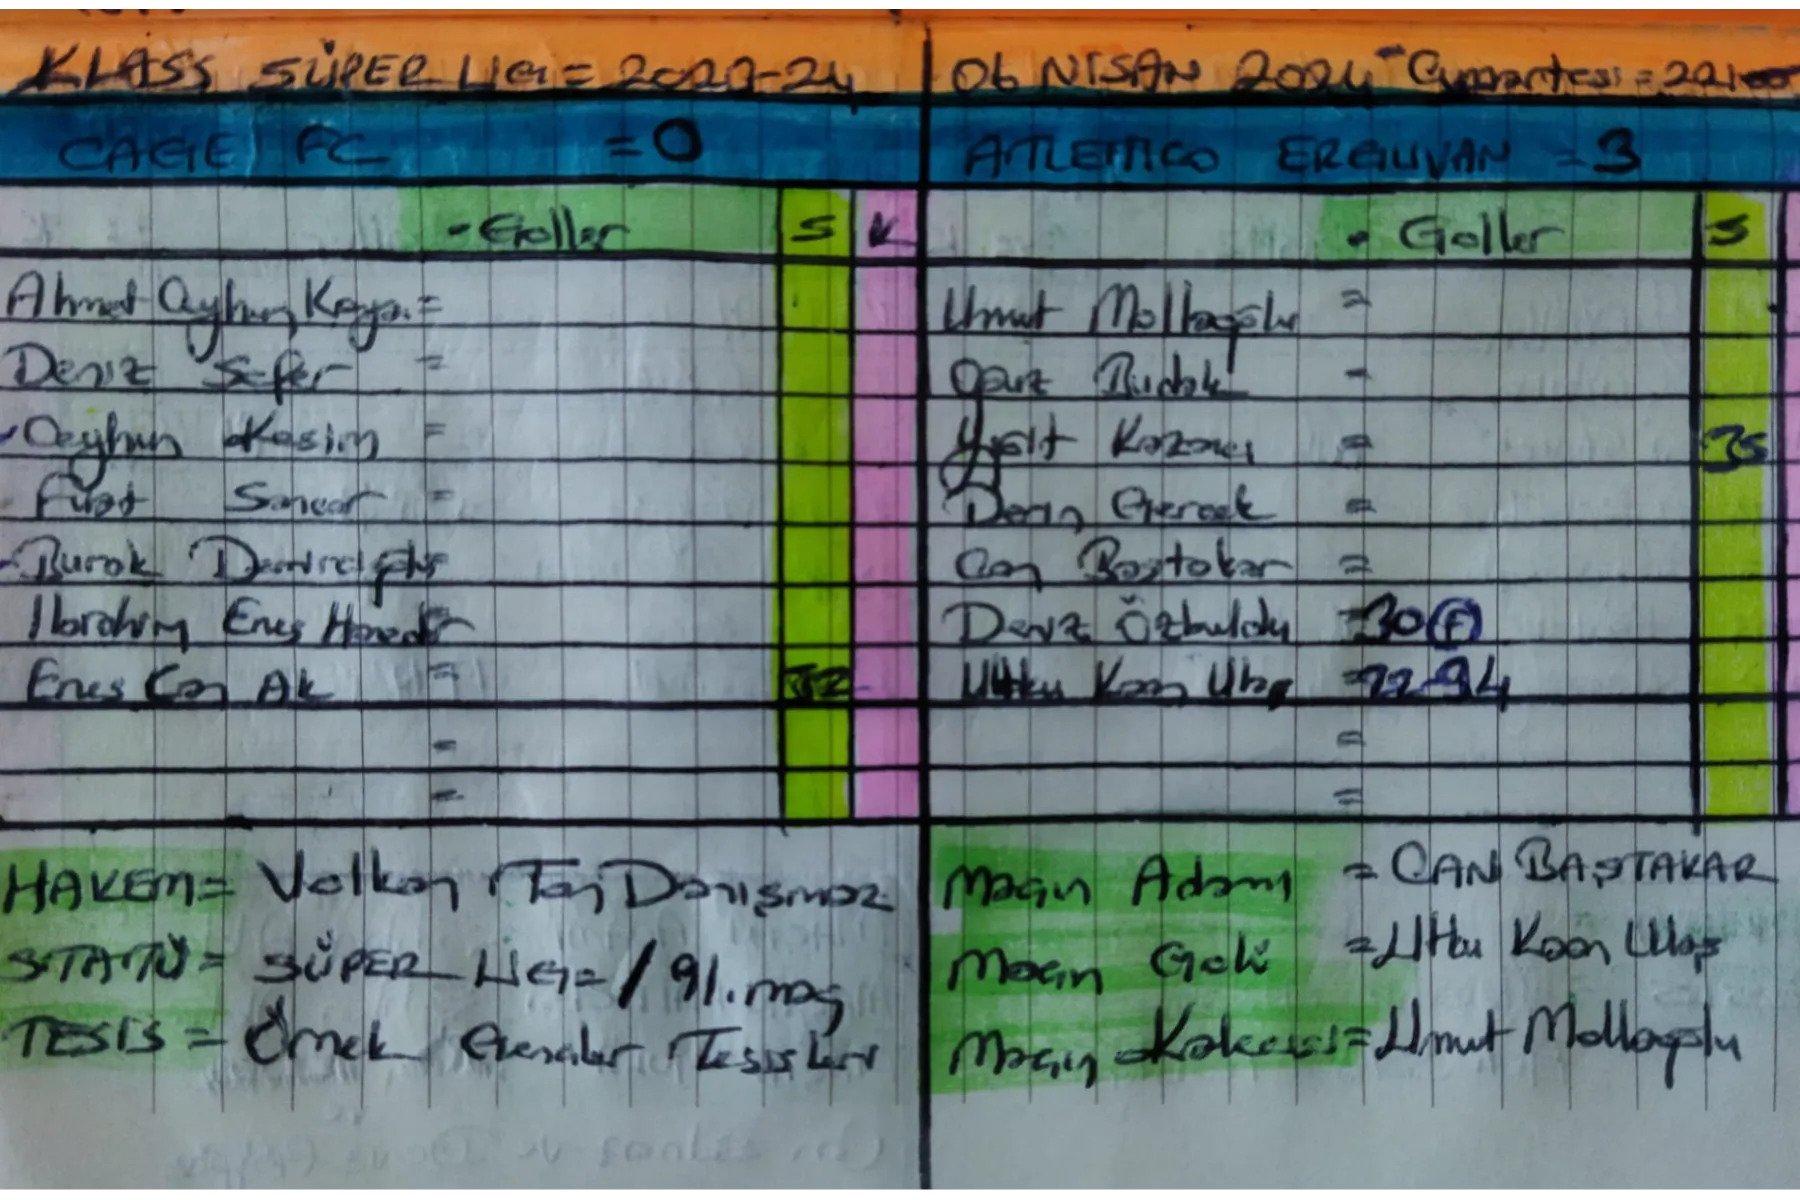 KLASS SÜPER LİG = 2023-24
06 NİSAN 2024 - Cumartesi = 22:00
CAGE FC = 0
ATLETICO ERGUVAN = 3
- Goller S K
• Goller S
Ahmet Ayhun Kaya =
Umut Mollaoğlu =
Deniz Sefer =
Oğuz Budak =
Ceyhun Kasim =
Yiğit Kazancı = 35
Fırat Sancar =
Derin Gercek =
Burak Demircioğlu
Can Baştakar =
Ibrahim Enes
Deniz Özbuldu = 30 (F)
Enes Can Ak = 32
Utku Kaan Ulaş = 22-94
=
=
=
=
HAKEM = Volkan Tan Danışmaz
STATÜ = SÜPER LİG = / 91. maç
TESİS = Örnek Gençler Tesisleri
Maçın Adamı = CAN BAŞTAKAR
Maçın Golü = Utku Kaan Ulaş
Maçın Kalecisi = Umut Mollaoğlu